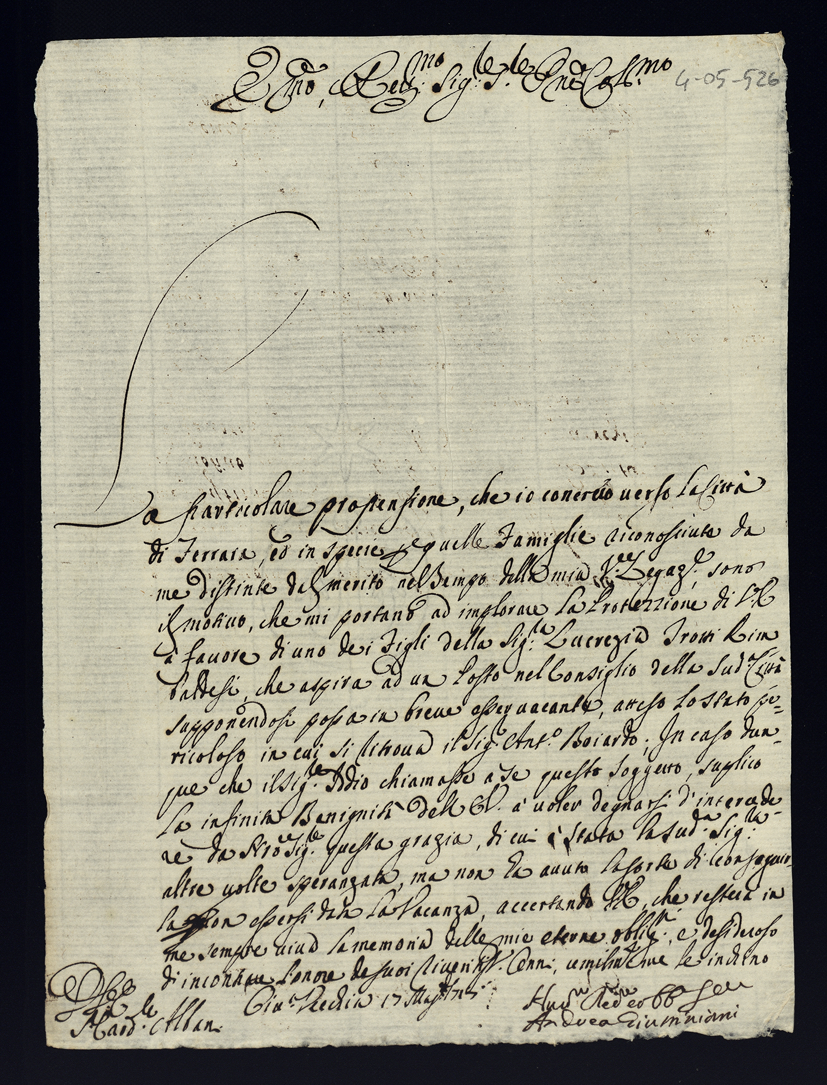 Emo, e Revmo Sigle Sle Pne Collmo
4-05-526
La particolare propensione, che io conservo verso la Città
di Ferrara, ed in specie p quelle Famiglie riconosciute da
me distinte del merito nel tempo della mia V. Legazne, sono
il motivo, che mi portano ad implorare la Protezzione di V.E.
a favore di uno dei Figli della Sigla Lucrezia Trotti Rim
baldesi, che aspira ad un Posto nel Consiglio della Suda Città
supponendosi possa in breve esser vacante, atteso lo stato pe-
ricoloso in cui si ritrova il Sigr Anto Boiardo; In caso dun-
que che il Sigre Iddio chiamasse a se questo soggetto, suplico
la infinita Benignità dell'E.V. à voler degnarsi d'intercede-
re da Nro Sigre questa grazia, di cui è stata la Suda Sigra
altre volte speranzata, ma non ha avuto la sorte di conseguir-
la non essersi data la Vacanza, accertando V.E., che resterà in
me sempre viva la memoria delle mie eterne obblig, e desideroso
di incontrare l'onore de suoi riveritssi Cenni, umilmte me le inchino
Cia Vecchia 17 Mag
Card. le Albani
Andrea Giumniani